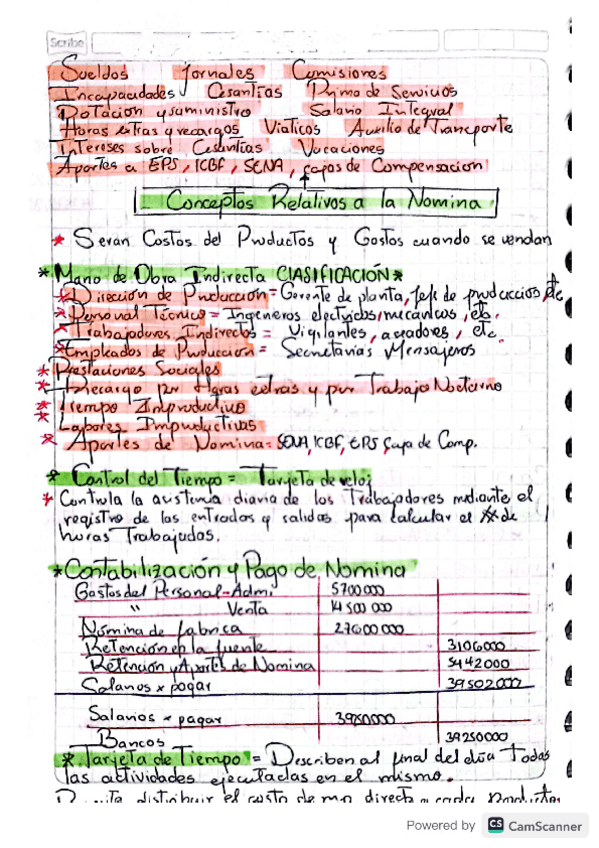 Scribe
Sueldos Jornales Comisiones
Incapacidades Cesantias Prima de Servicios
Dotacion y suministro Salario Integral
Horas extras y recargos Viaticos Auxilio de Transporte
Intereses sobre Cesantias Vacaciones
Aportes a EPS, ICBF, SENA, cajas de Compensacion
Conceptos Relativos a la Nomina
* Seran Costos del Productos y Gastos cuando se vendan
* Mano de Obra Indirecta CLASIFICACIÓN *
* Dirección de Producción = Gerente de planta, jefe de produccion, etc
* Personal Técnico = Ingenieros electricos, mecanicos, etc.
* Trabajadores Indirectos = Vigilantes, aseadores, etc.
* Empleados de Produccion = Secretarias Mensajeros
* Prestaciones Sociales
* Recargo por Horas extras y por Trabajo Nocturno
* Tiempo Improductivo
* Labores Improductivas
* Aportes de Nomina = SENA, ICBF, EPS, Caja de Comp.
* Control del Tiempo = Tarjeta de reloj
* Controla la asistencia diaria de los Trabajadores mediante el
registro de las entradas y salidas para calcular el # de
horas Trabajadas.
* Contabilización y Pago de Nomina
Gastos del Personal-Admi 5700000
" Venta 14 500 000
Nómina de fabrica 27600000
Retención en la fuente 3106000
Retención y Aportes de Nomina 5442000
Salarios x pagar 39502000
Salarios x pagar
Bancos 39250000
* Tarjeta de Tiempo = Describen al final del dia Todas
las actividades ejecutadas en el mismo.
distribuir el costo de mo directa a cada Producto
Powered by CS CamScanner